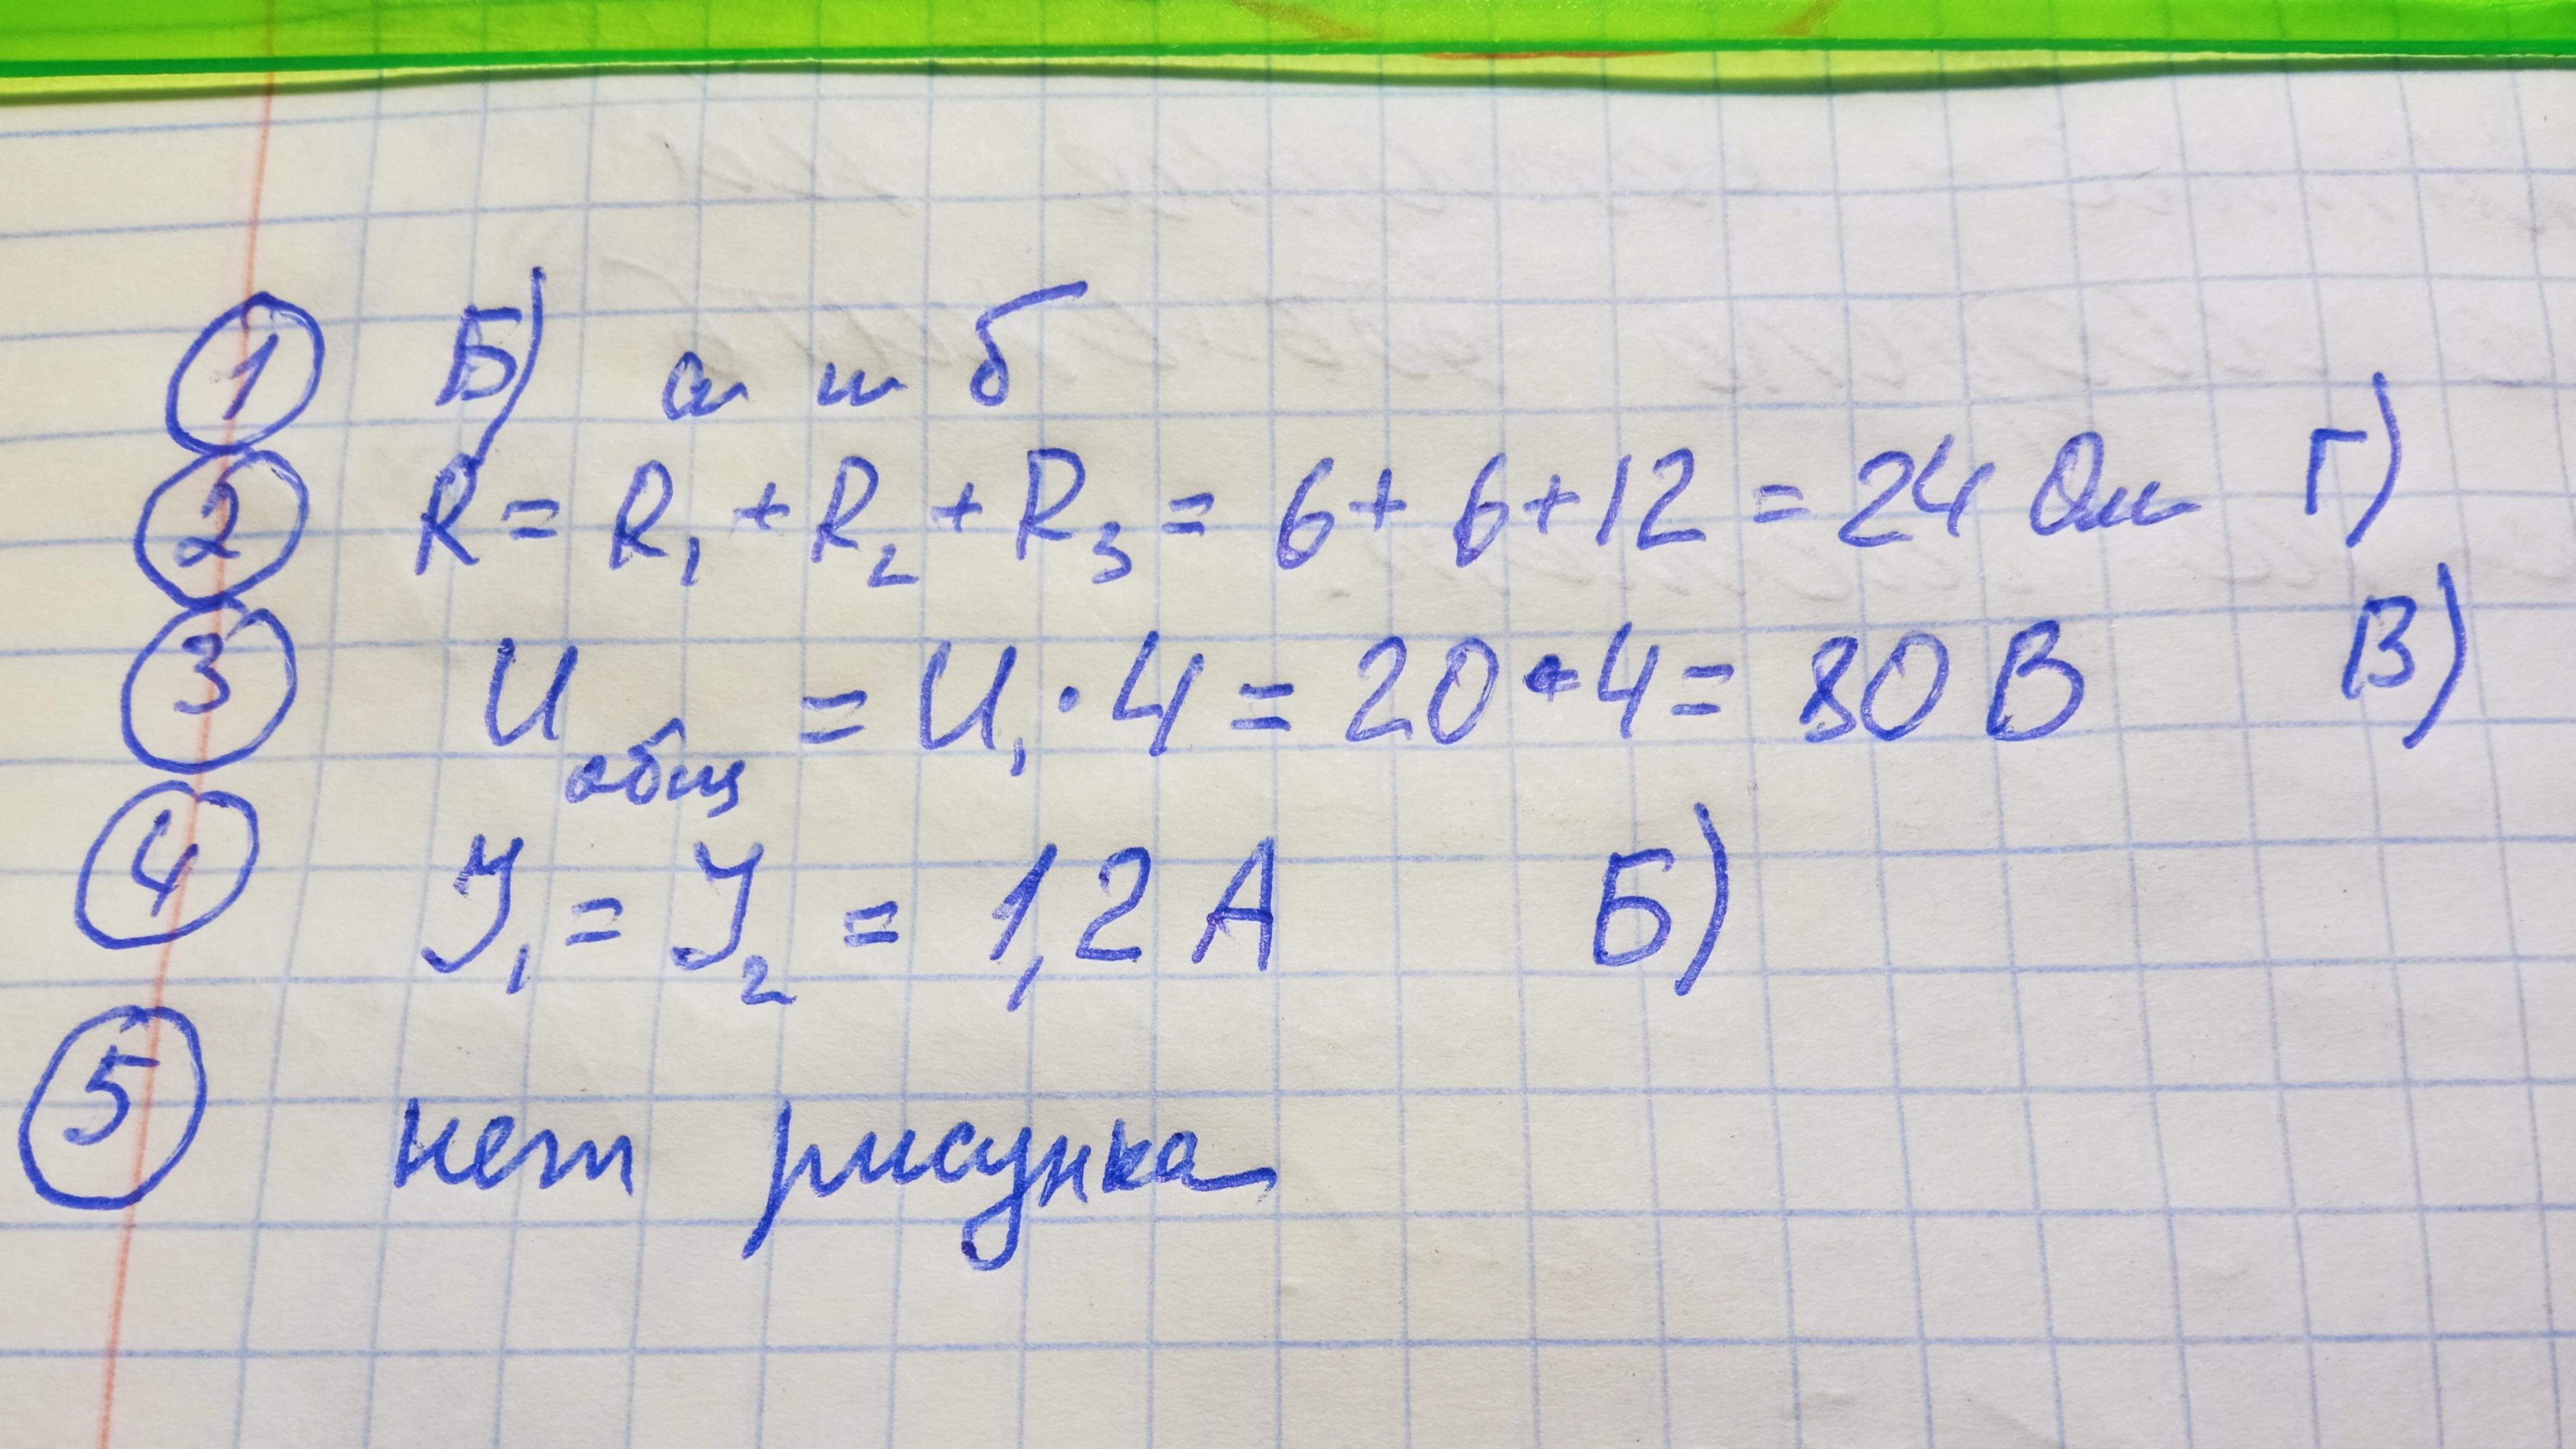 1 Б) а и б
2 R = R₁ + R₂ + R₃ = 6 + 6 + 12 = 24 Ом Г)
3 U общ = U₁ · 4 = 20 · 4 = 80 В В)
4 J₁ = J₂ = 1,2 А Б)
5 нет рисунка